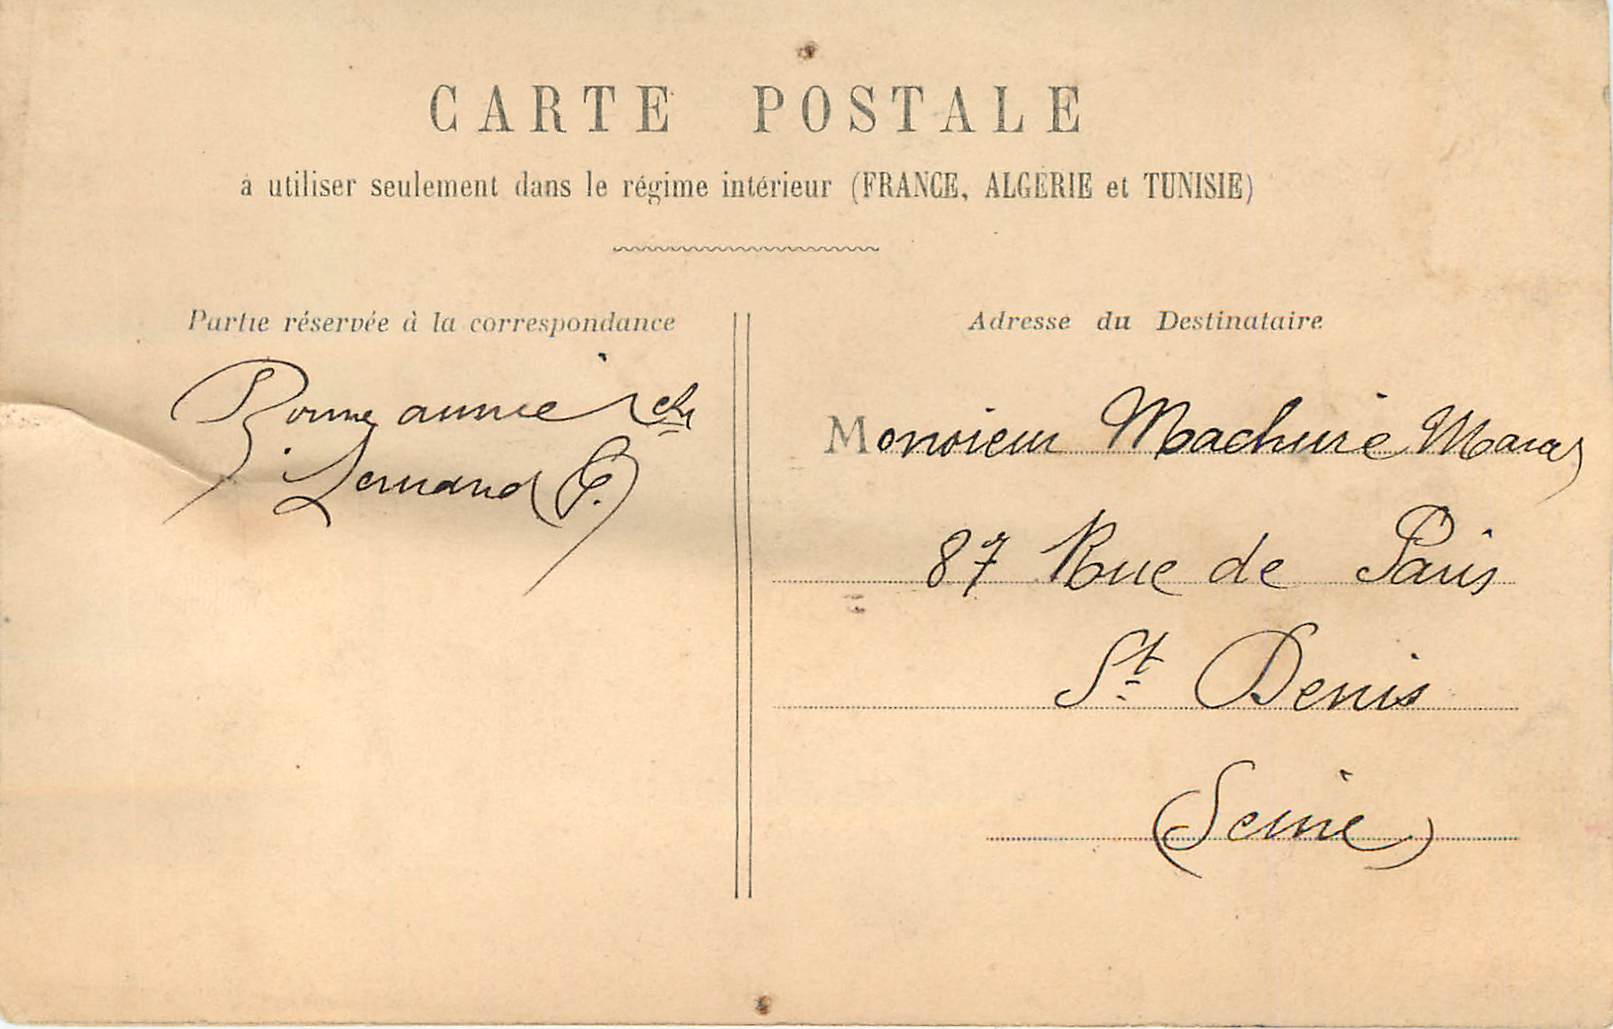 CARTE POSTALE
à utiliser seulement dans le régime intérieur (FRANCE, ALGÉRIE et TUNISIE)
Partie réservée à la correspondance
Bonne année
Fernand
Adresse du Destinataire
Monsieur Machuré
87 Rue de Paris
St Denis
(Seine)